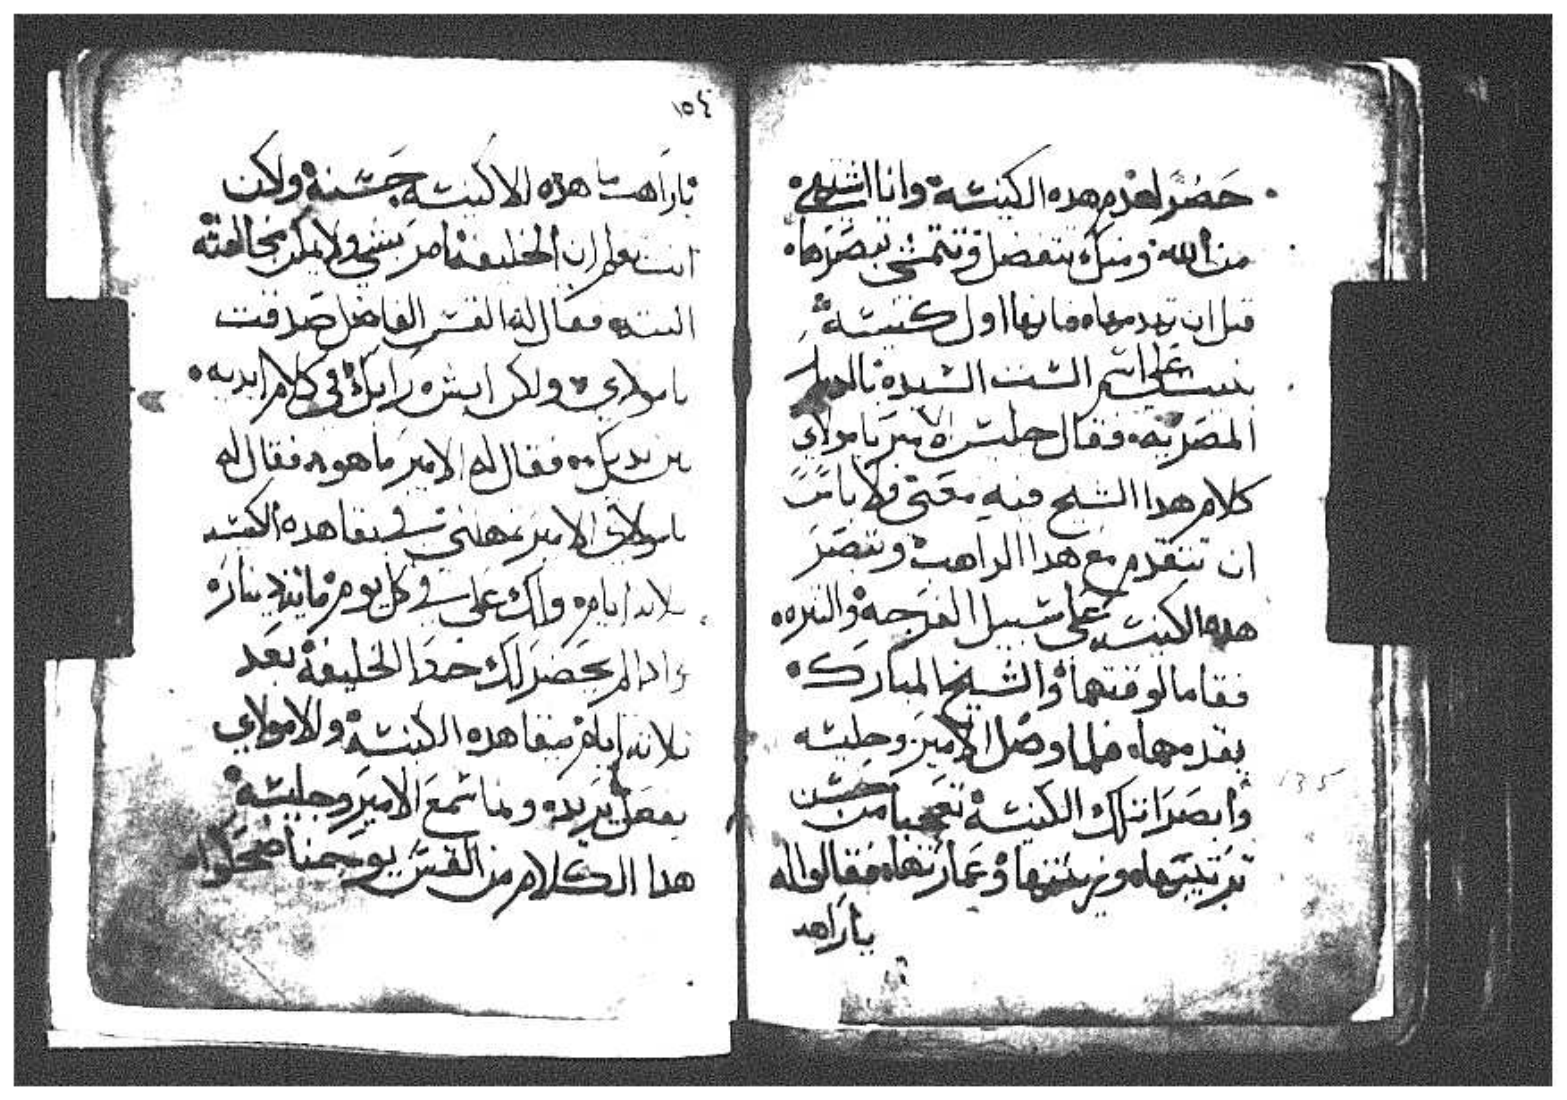 حضر لهدم هده الكنيسة وانا اشتهي
من الله ومنك تتفضل وتتمشي تبصرها
قبل ان تهدمها فانها اول كنيسة
بنيت على اسم الست السيدة بالديار
المصرية فقال جليس الامير يا مولاي
كلام هدا الشيخ فيه معنى ولا باس
ان تتقدم مع هدا الراهب وتبصر
هده الكنيسة على سبيل الفرجة والنزه
فقاما لوقتهما والشيخ المبارك
يقدمهما فلما وصل الامير وجليسه
وابصرا تلك الكنيسة تعجبا من حسن
ترتيبها وزينتها وعمارتها فقالوا له
يا راهب
١٥٤
يا راهب ما هده الا كنيسة حسنة ولكن
انت تعلم ان الخليفة امر بشي ولا يمكن مخالفته
البته فقال له القس الفاضل صدقت
يا مولاي ولكن ايش رايك في كلام ابديه
بين يديك فقال له الامير ما هو فقال له
يا مولاي الامير تمهلني في بقا هده الكنيسة
تلاتة ايام ولك علي في كل يوم مايتي دينار
وادا لم يحضر لك خط الخليفة بعد
تلاتة ايام ببقا هده الكنيسة والا مولاي
يفعل ما يريده ولما سمع الامير وجليسه
هدا الكلام من القس يوحنا ضحكوا